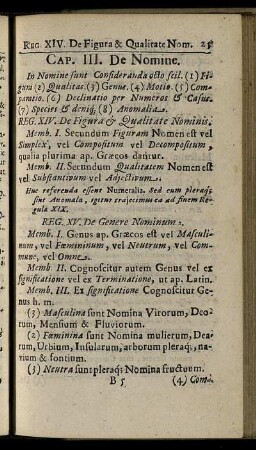 REG. XIV. De Figura & Qualitate Nom. 25
CAP. III. De Nomine.
In Nomine sunt Consideranda octo scil. (1) Fi-
gura (2) Qualitas (3) Genus. (4) Motio. (5) Com-
parotio. (6) Declinatio per Numeros & Casus.
(7) Species & deniq; (8) Anomalia.
REG. XIV. De Figura & Qualitate Nominis.
Memb. I. Secundum Figuram Nomen est vel
Simplex, vel Compositum vel Decompositum,
qualia plurima ap. Græcos dantur.
Memb. II. Secundum Qualitatem Nomen est
vel Substantivum vel Adjectivum.
Huc referenda essent Numeralia. Sed cum pleraq;
sint Anomala, igitur trajecimus ea ad finem Re-
gula XIX.
REG. XV. De Genere Nominum.
Memb. I. Genus ap. Græcos est vel Masculi-
num, vel Fœmininum, vel Neutrum, vel Com-
mune, vel Omne.
Memb. II. Cognoscitur autem Genus vel ex
significatione vel ex Terminatione, ut ap. Latin.
Memb. III. Ex significatione Cognoscitur Ge-
nus h. m.
(1) Masculina sunt Nomina Virorum, Deo-
rum, Mensium & Fluviorum.
(2) Fœminina sunt Nomina mulierum, Dea-
rum, Urbium, Insularum, arborum pleraq;, na-
vium & fontium.
(3) Neutra sunt pleraq; Nomina fructuum.
B 5 (4) Com-